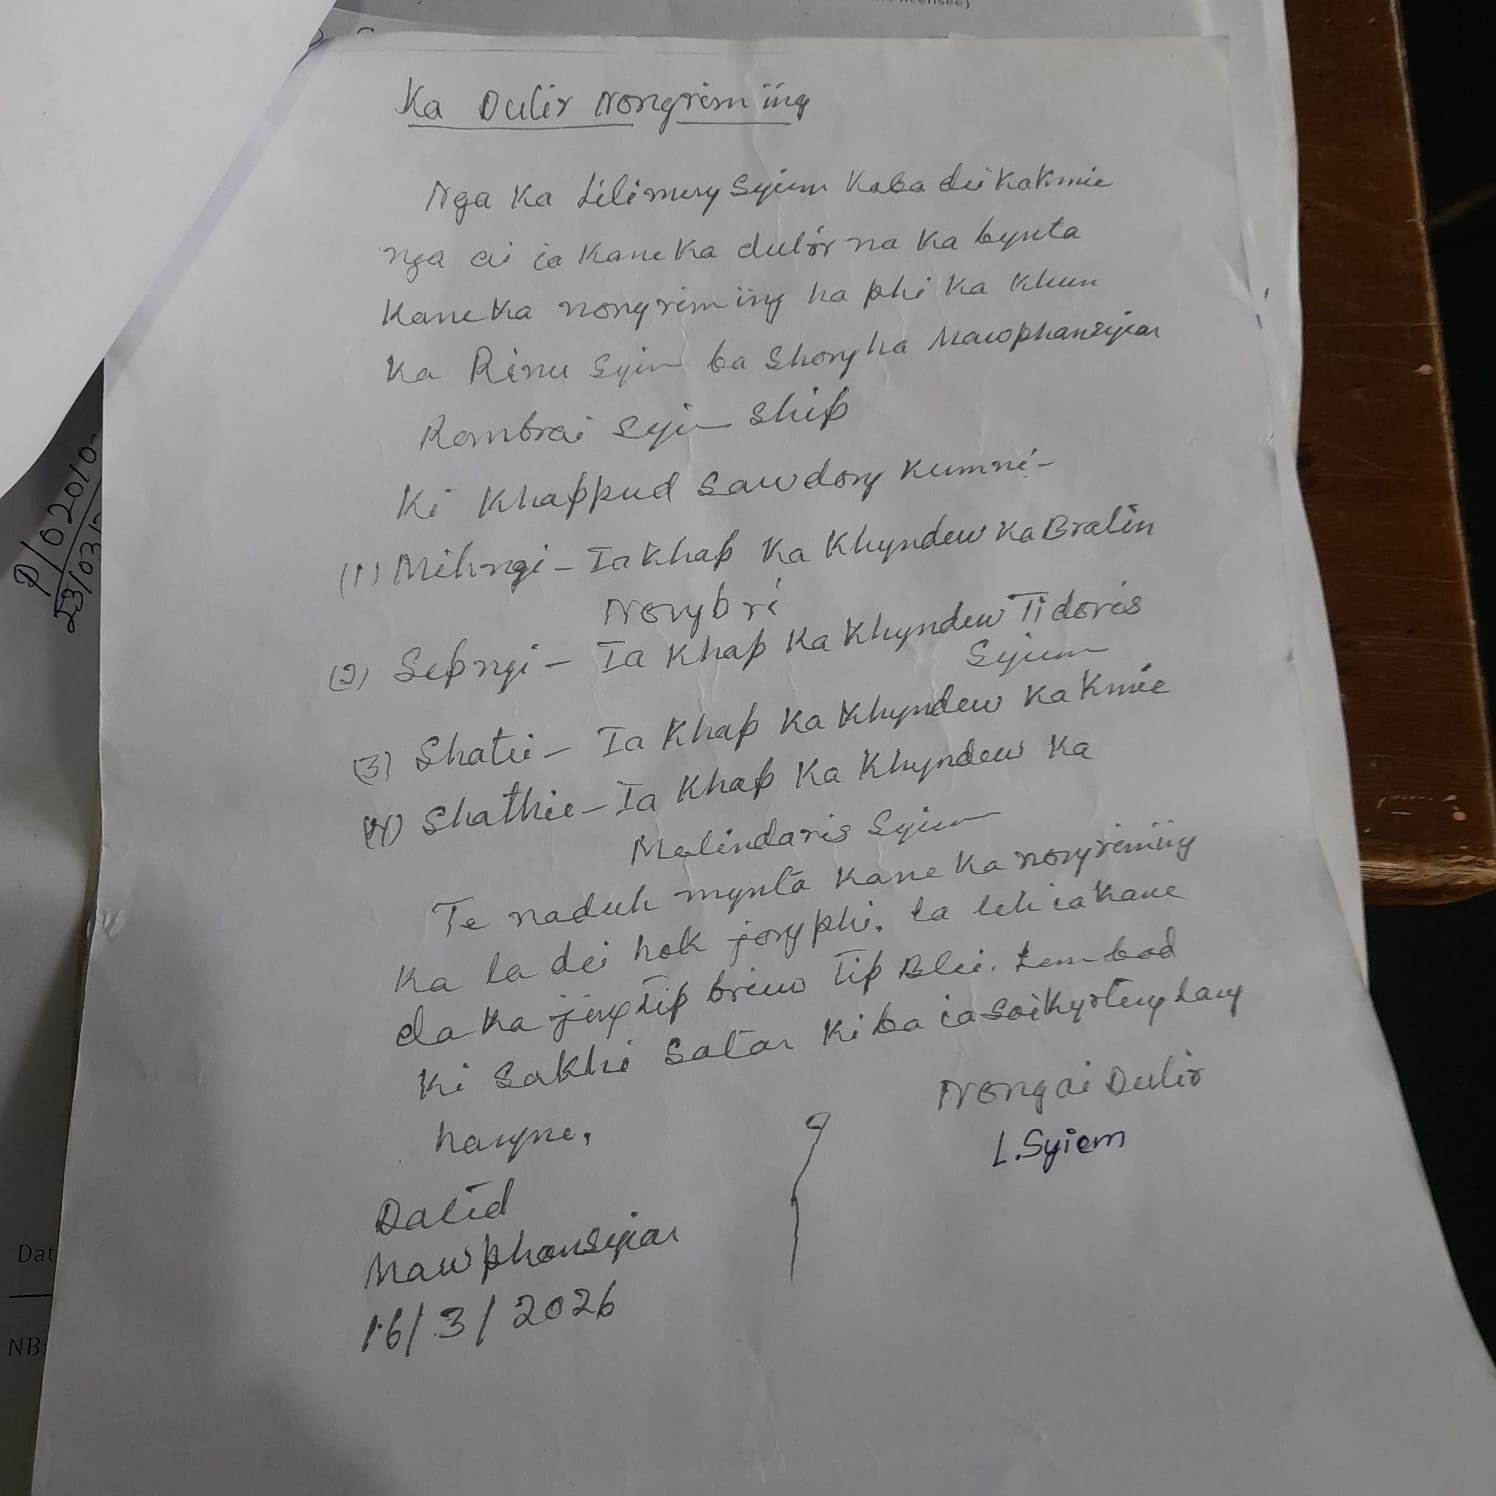 Ka Dulir Nongrim iing
Nga Ka Lilimery Syiem Kaba dei Ka Kmie
nga ai ia Kane Ka dulir na Ka bynta
Kane Ka nongrim iing ha phi Ka Khun
Ka Rinu Syiem ba Shong ha Mawphansyiar
Rombrai Syiem Ship
Ki Khappud Sawdong Kumne-
(1) Mihngi - Ia Khap Ka Khyndew Ka Bralin
Nongbri
(2) Sepngi - Ia Khap Ka Khyndew Tidoris
Syiem
(3) Shatei - Ia Khap Ka Khyndew Ka Kmie
(4) Shathie - Ia Khap Ka Khyndew Ka
Melindaris Syiem
Te naduh mynta Kane Ka nongrimiing
Ka la dei hok jong phi. La leh ia Kane
da Ka jingtip briew Tip Blei. Lem bad
Ki Sakhi Satar Ki ba ia Soi Kyrteng Lang
haryne.
Nongai Dulir
L. Syiem
Datid
Mawphansyiar
16/3/2026
P/020/0
23/03/
Dat
NB:
licensee)